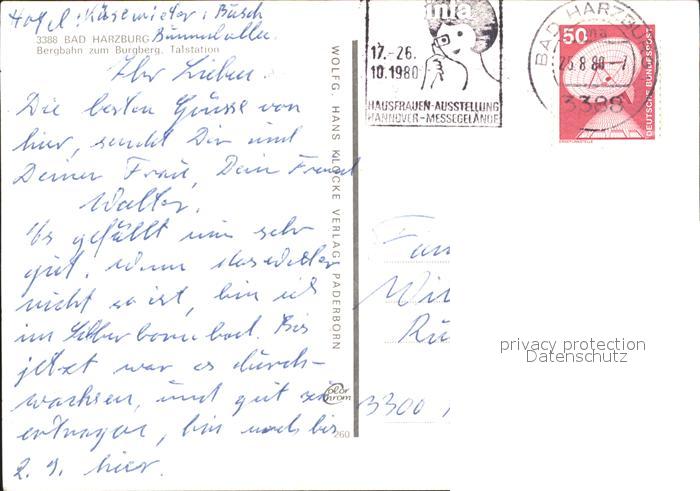 Hotel: Käsewieter: Busch
Bummelallee
3388 BAD HARZBURG
Bergbahn zum Burgberg, Talstation
Ihr Lieben.
Die besten Grüsse von
hier, sendet Dir und
Deiner Frau, Dein Freund
Walter.
Es gefällt mir sehr
gut, wenn das wetter
nicht so ist, bin ich
im Silberbornbad. Bis
jetzt war es durch-
wachsen, und gut zu
ertragen, bin noch bis
2. 9. hier.
WOLFG. HANS KLOCKE VERLAG PADERBORN
Color
Chrom
260
infa
17.-26.
10.1980
HAUSFRAUEN-AUSSTELLUNG
HANNOVER-MESSEGELÄNDE
BAD HARZBURG
8.80-7
3388
50
DEUTSCHE BUNDESPOST
Fam
Wil
Rü
3300
privacy protection
Datenschutz